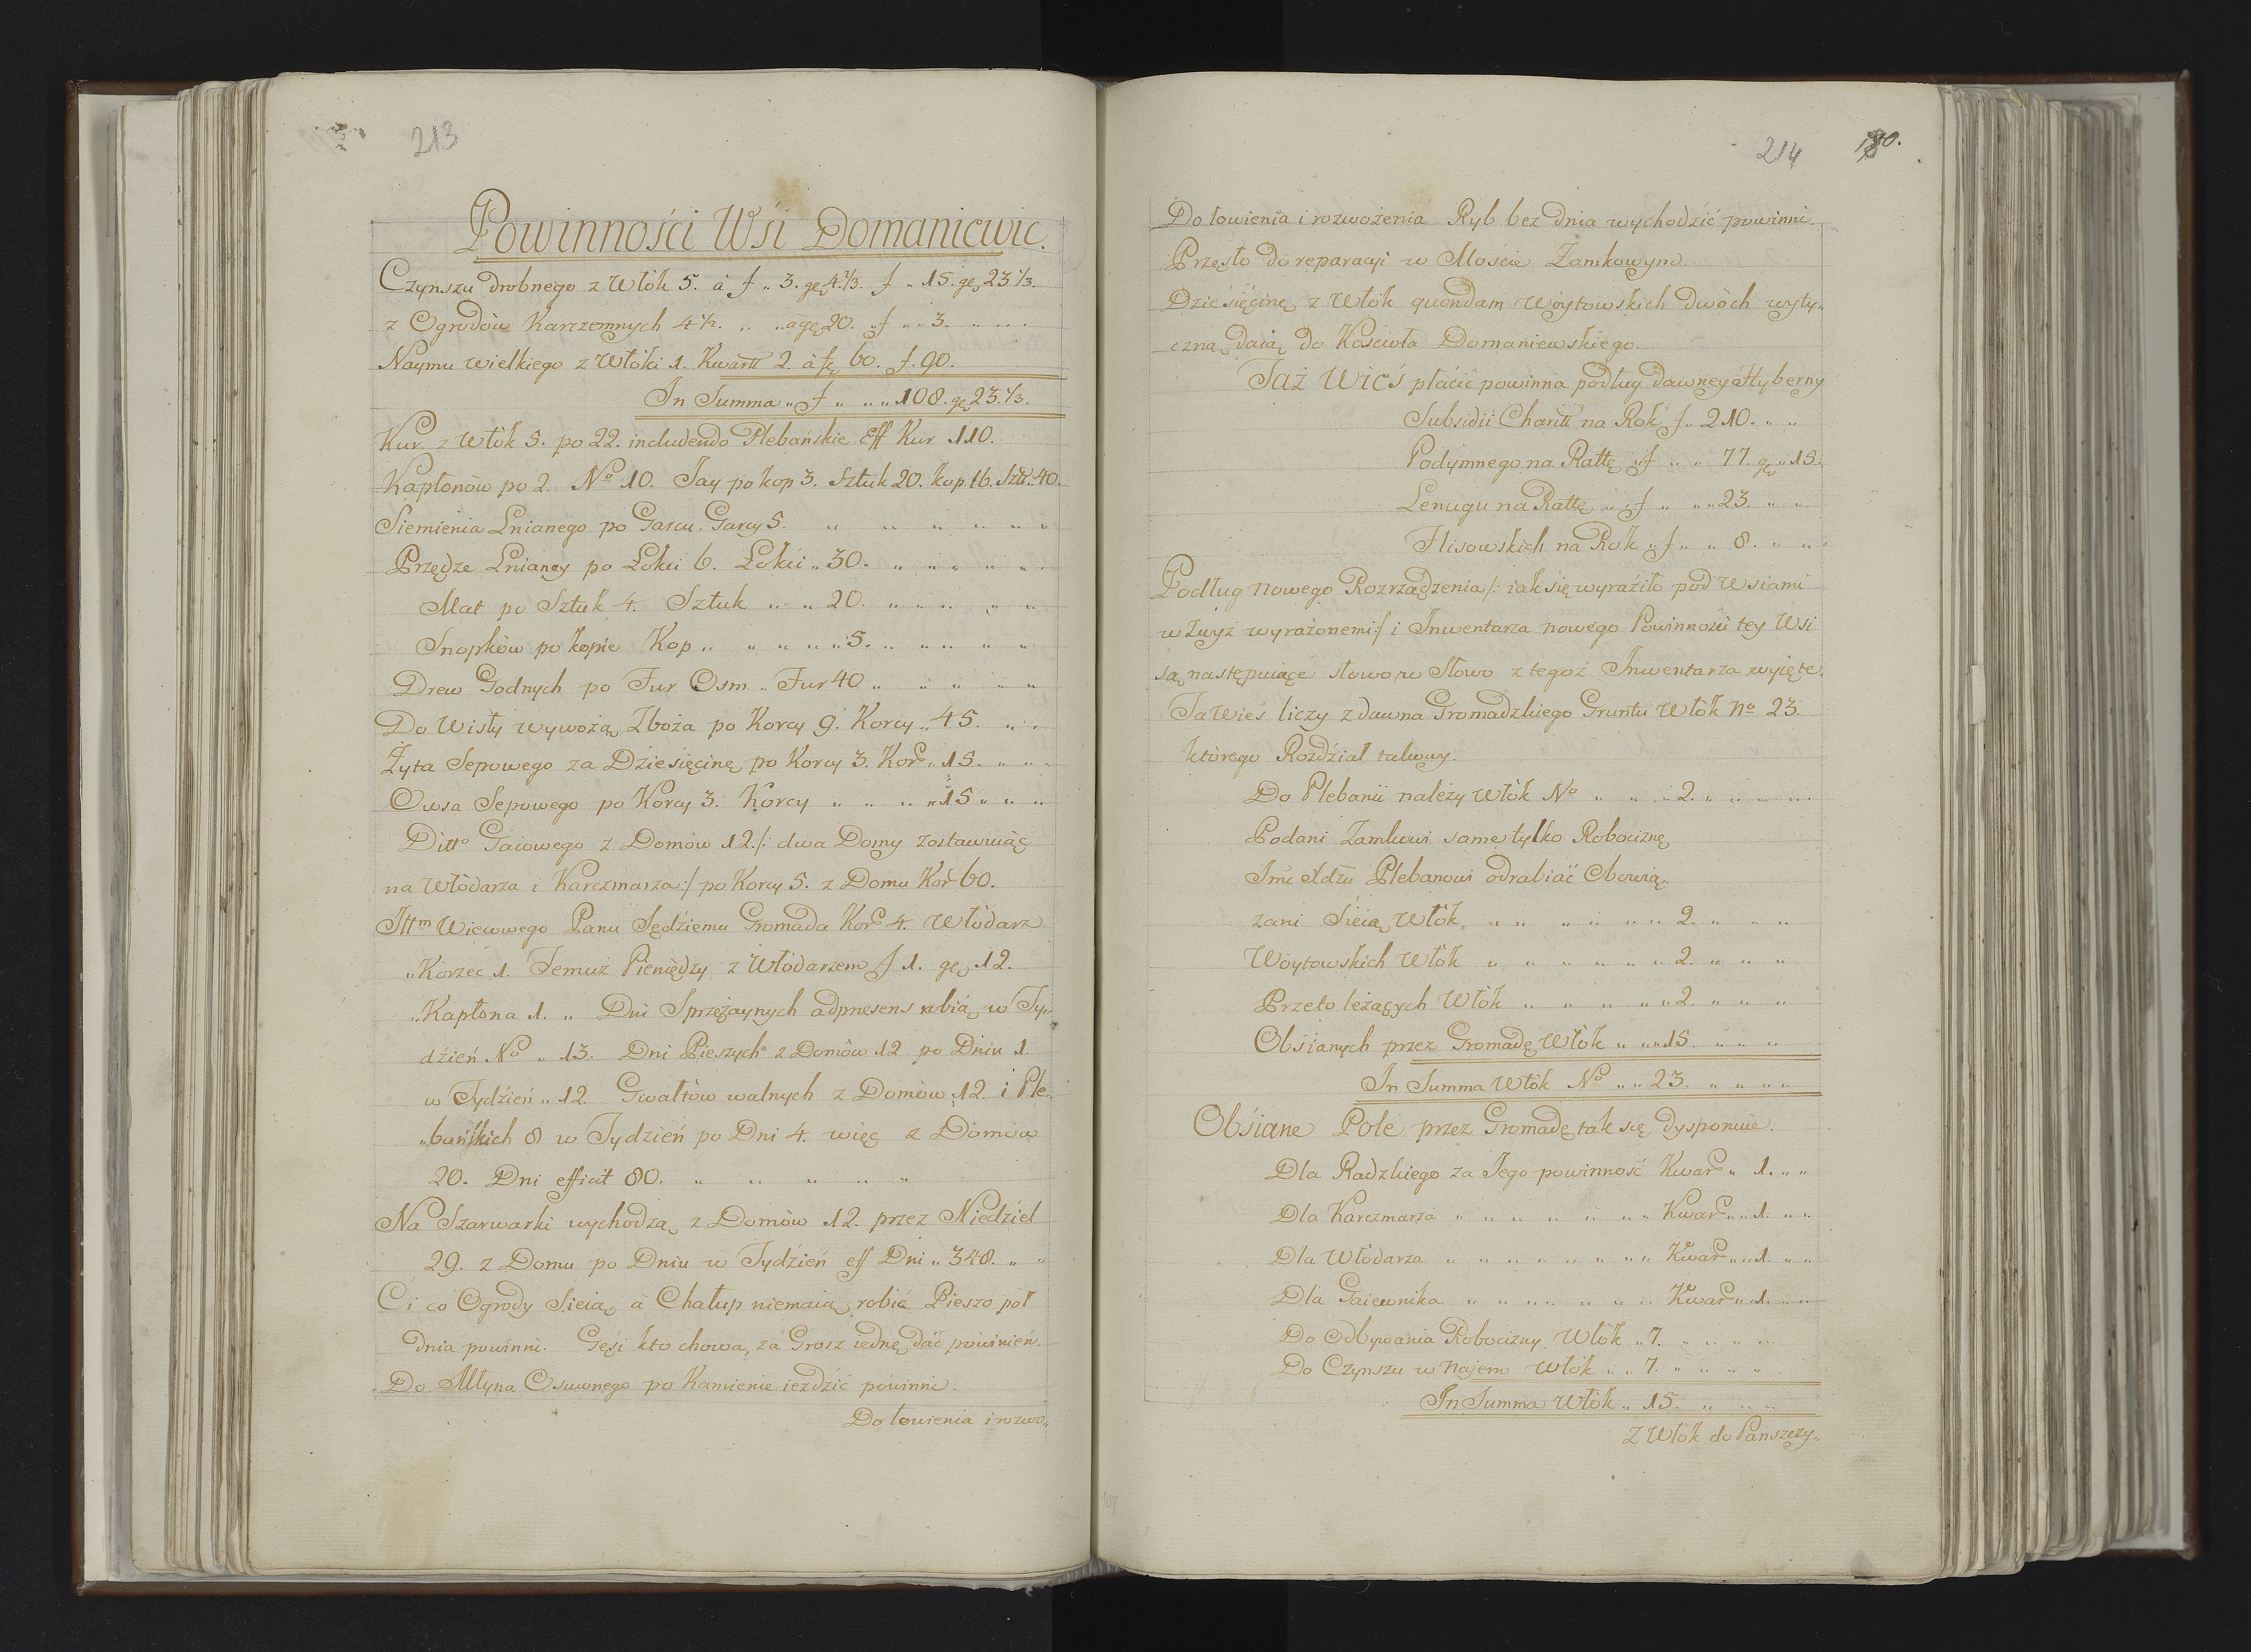 213
Powinności Wśi Domaniewic.
Czynszu drobnego z Włók 5. à f „ 3. gę 4.⅓. f „ 15. gę 23⅓.
z Ogrodów Karczemnych 4½. „ „ a gę 20. „f „ „ 3. „ „ „
Naymu wielkiego z Włóki 1. Kwartt 2. à fę 60. f. 90.
In Summa „ f „ „ „ 108. gę 23.⅓.
Kur z Włók 5. po 22. includendo Plebańskie eff Kur 110.
Kapłonów po 2. No 10. Jay po kop 3. Sztuk 20. kop 16. Szt. 40.
Siemienia Lnianego po Garcu. Garcy 5. „ „ „ „ „ „
Przędze Lnianey po Łokci 6. Łokci „ 30. „ „ „ „ „
Mat po Sztuk 4. Sztuk „ „ 20. „ „ „ „ „
Snopków po kopie Kop „ „ „ „ „ 5. „ „ „ „ „
Drew Godnych po Fur Osm „ Fur 40 „ „ „ „ „
Do Wisły wywożą Zboża po Korcy 9. Korcy „ 45. „ „
Żyta Sepowego za Dziesięcinę po Korcy 3. Korc „ 15. „ „ „
Owsa Sepowego po Korcy 3. Korcy „ „ „ „ 15 „ „ „
Ditto Gaiowego z Domów 12 /: dwa Domy zostawuiąc
na Włódarza i Karczmarza :/ po Korcy 5. z Domu Kor 60.
Ittm Wiecowego Panu Sędziemu Gromada Korc 4. Włódarz
„Korzec 1. Temuż Pieniędzy z Włódarzem f 1. gę 12.
„Kapłona 1. „ Dni Sprzężaynych adpræsens robią w Ty„
dzień No „ 13. Dni Pieszych z Domów 12 po Dniu 1.
w Tydzień „ 12. Gwałtów walnych z Domów 12. i Ple„
„bańskich 8 w Tydzień po Dni 4. więc z Domów
20. Dni efficit 80. „ „ „ „ „
Na Szarwarki wychodzą z Domów 12. przez Niedziel
29. z Domu po Dniu w Tydzień eff Dni „ 348. „ „
Ci co Ogrody Sieią, à Chałup niemaią, robić Pieszo poł
dnia powinni. Gęsi kto chowa, za Grosz iednę dać powinien.
Do Młyna Osuwnego po Kamienie ieździć powinni.
Do łowienia i rozwo„
214 180.
Do łowienia i rozwożenia Ryb bez dnia wychodzić powinni.
Przęsło do reparacyi w Moście Zamkowym.
Dziesięcinę z Włók quondam Woytowskich dwóch wyty„
czną daią do Kościoła Domaniewskiego.
Taż Wieś płacić powinna podług dawney Hyberny
Subsidii Charitt na Rok f „ 210. „ „
Podymnego na Rattę „f „ „ 77. gę „ 15.
Lenugu na Rattę „ f „ „ „ 23. „ „
Flisowskich na Rok „f „ „ 8. „ „
Podług nowego Rozrządzenia /: iak się wyraziło pod Wsiami
w Zwyż wyrażonemi :/ i Inwentarza nowego Powinności tey Wsi
są następuiące słowo w Słowo z tegoż Inwentarza wyięte.
Ta Wieś liczy zdawna Gromadzkiego Gruntu Włók No 23.
którego Rozdział takowy.
Do Plebanii należy Włók No „ „ „ 2. „ „ „ „
Podani Zamkowi same tylko Robociznę
Imć Xdzu Plebanowi odrabiać Obowią„
zani Sieią Włók „ „ „ „ „ „ 2. „ „ „
Woytowskich Włók „ „ „ „ „ „ 2. „ „ „
Przeto leżących Włók „ „ „ „ „ 2. „ „ „
Obsianych przez Gromadę Włók „ „ „ 15. „ „ „
In Summa Włók No „ „ 23. „ „ „ „
Obsiane Pole przez Gromadę tak się dysponuie.
Dla Radzkiego za Jego powinność Kwar „ 1. „ „
Dla Karczmarza „ „ „ „ „ „ „ Kwar „ „ 1. „ „
Dla Włódarza „ „ „ „ „ „ „ „ Kwar „ „ 1. „ „
Dla Gaiewnika „ „ „ „ „ „ „ Kwar „ „ 1. „ „
Do Odbywania Robocizny Włók „ 7. „ „ „ „
Do Czynszu w Najem Włók „ „ 7. „ „ „ „ „
In Summa Włók „ 15. „ „ „
Z Włók do Panszczy„